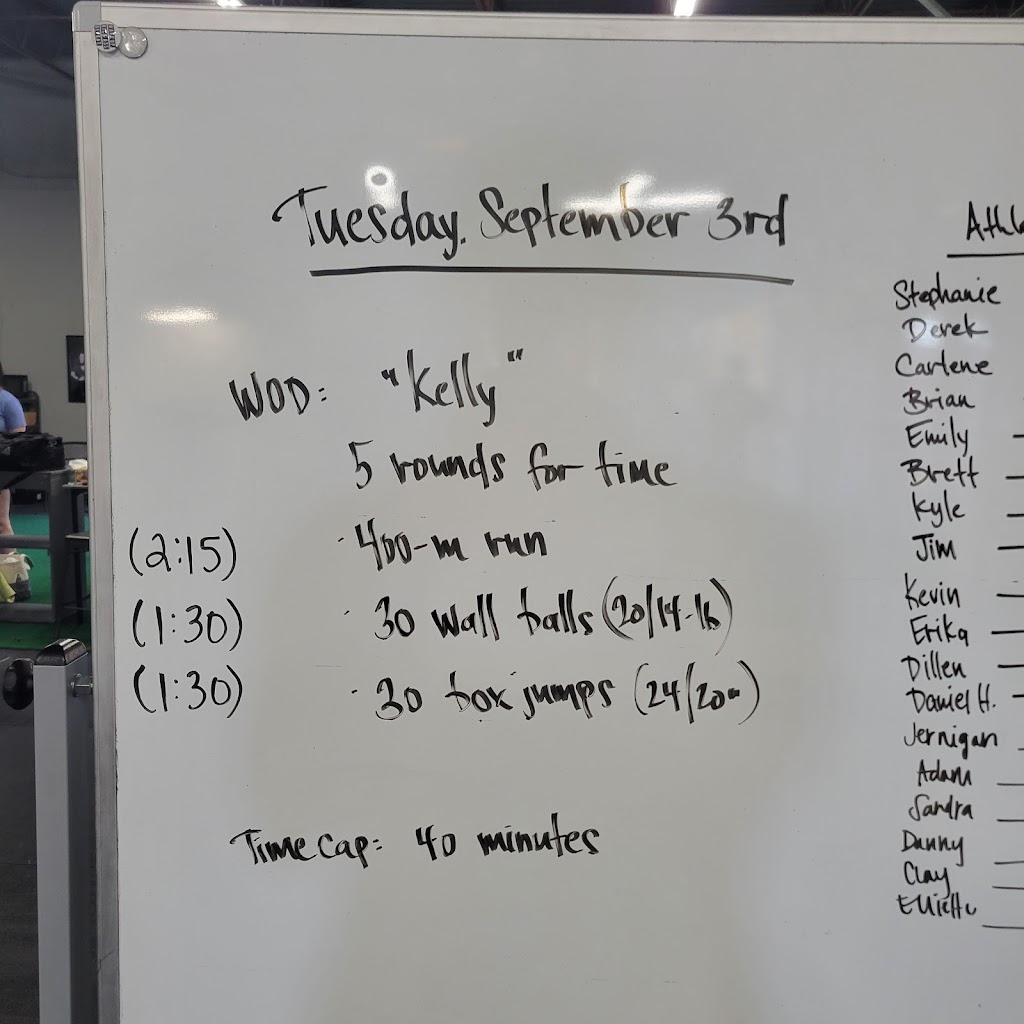 Tuesday, September 3rd
WOD: "Kelly"
5 rounds for time
(2:15) · 400-m run
(1:30) · 30 wall balls (20/14-lb)
(1:30) · 30 box jumps (24/20")
Time Cap: 40 minutes
Stephanie
Derek
Carlene
Brian
Emily
Brett
Kyle
Jim
Kevin
Erika
Dillen
Daniel H.
Jernigan
Adam
Sandra
Danny
Clay